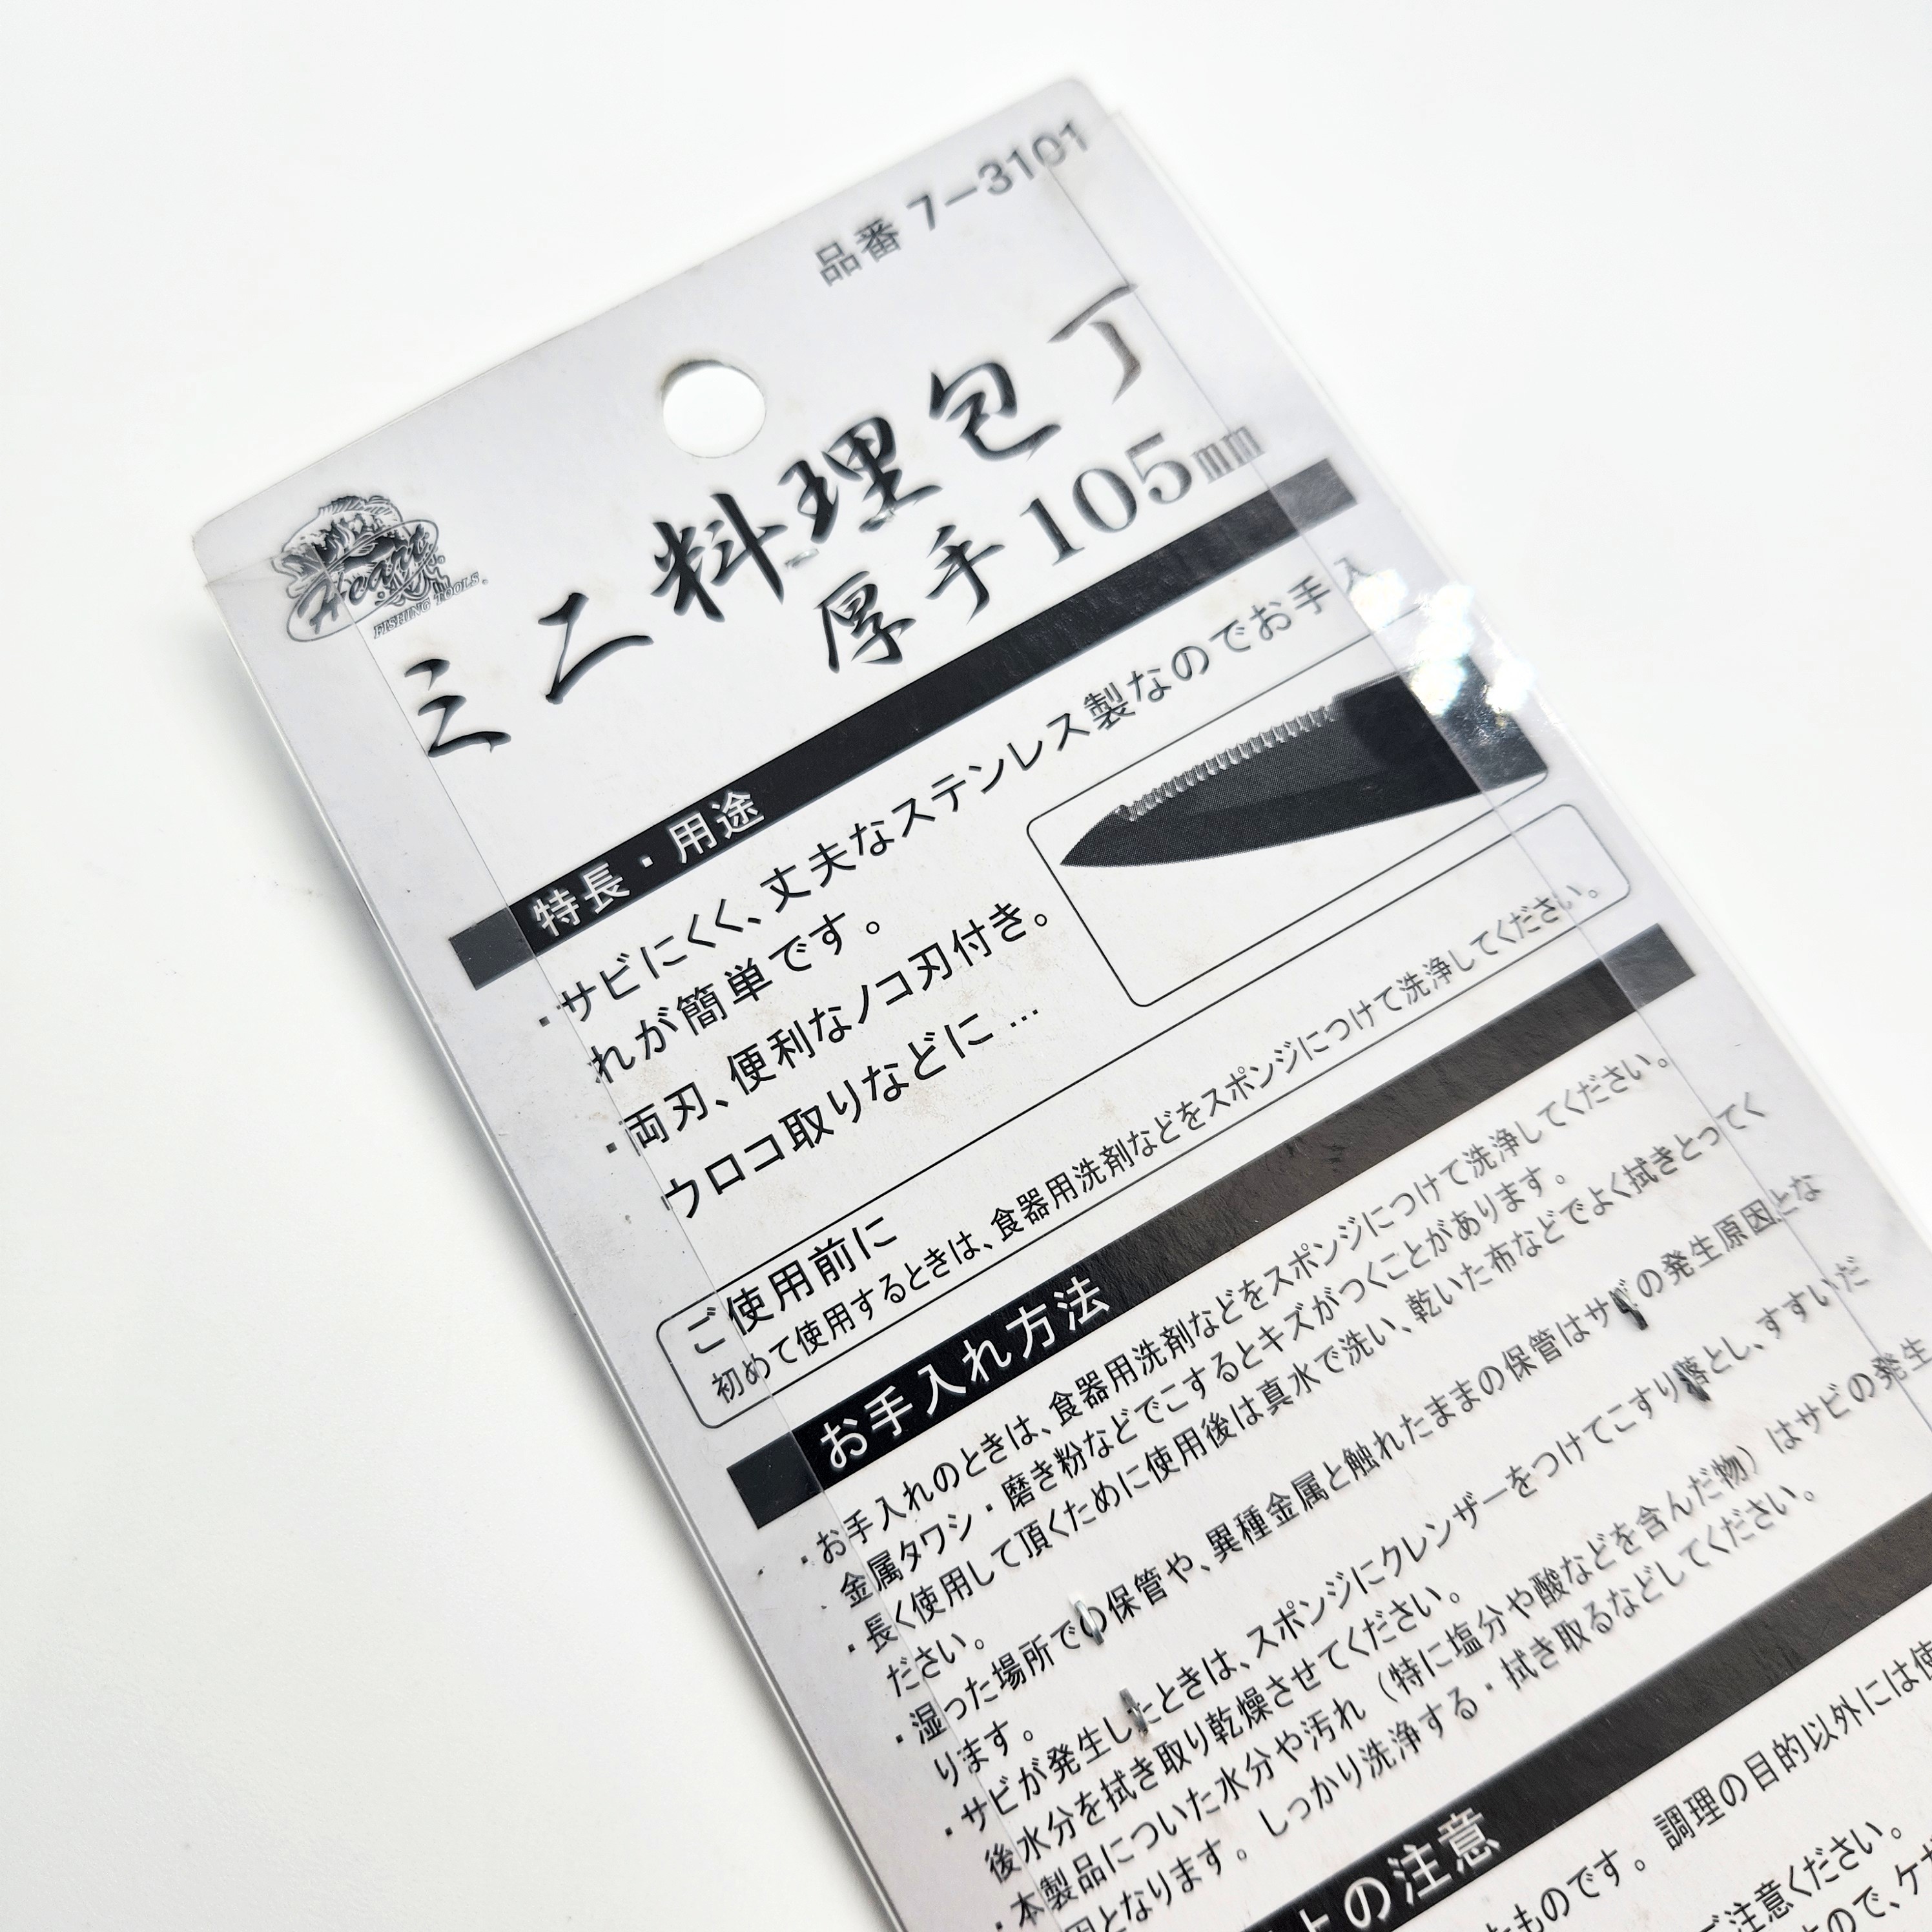 品番 7−3101
Heart
FISHING TOOLS.
ミニ料理包丁
厚手105mm
特長・用途
・サビにくく、丈夫なステンレス製なのでお手入
れが簡単です。
・両刃、便利なノコ刃付き。
ウロコ取りなどに…
ご使用前に
初めて使用するときは、食器用洗剤などをスポンジにつけて洗浄してください。
お手入れ方法
・お手入れのときは、食器用洗剤などをスポンジにつけて洗浄してください。
金属タワシ・磨き粉などでこするとキズがつくことがあります。
・長く使用して頂くために使用後は真水で洗い、乾いた布などでよく拭きとってく
ださい。
・湿った場所での保管や、異種金属と触れたままの保管はサビの発生原因とな
ります。
・サビが発生したときは、スポンジにクレンザーをつけてこすり落とし、すすいだ
後水分を拭き取り乾燥させてください。
・本製品についた水分や汚れ（特に塩分や酸などを含んだ物）はサビの発生
因となります。しっかり洗浄する・拭き取るなどしてください。
上の注意
ものです。調理の目的以外には使
ご注意ください。
ので、ケガ